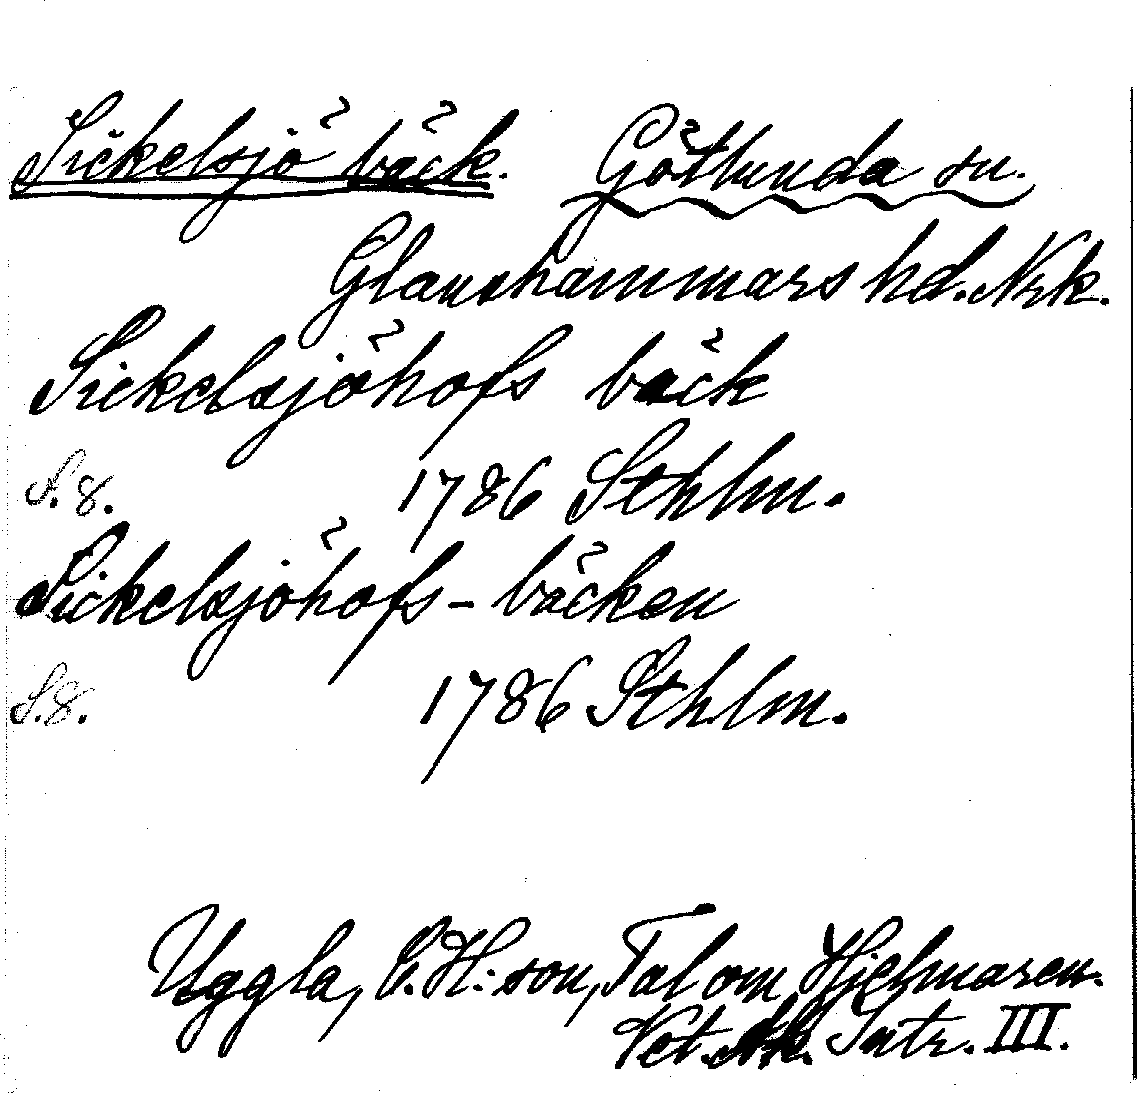 Sickelsjö bäck. Götlunda sn.
Glanshammars hd. Nrk.
Sickelsjöhofs bäck
S. 8. 1786 Sthlm.
Sickelsjöhofs-bäcken
S. 8. 1786 Sthlm.
Uggla, C. H:son, Tal om Hjelmaren.
Vet. Ak. Intr. III.